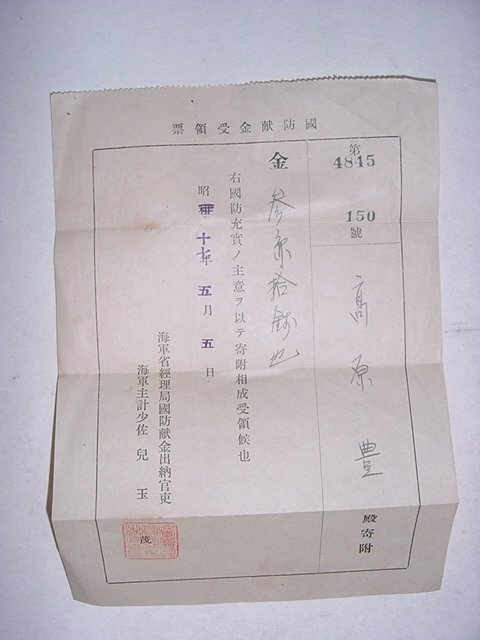 國防献金受領票
第
4845
150
號
高原豊
殿寄附
金
拾錢也
右國防充實ノ主意ヲ以テ寄附相成受領候也
昭和十年五月五日
海軍省經理局國防献金出納官吏
海軍主計少佐兒玉
茂